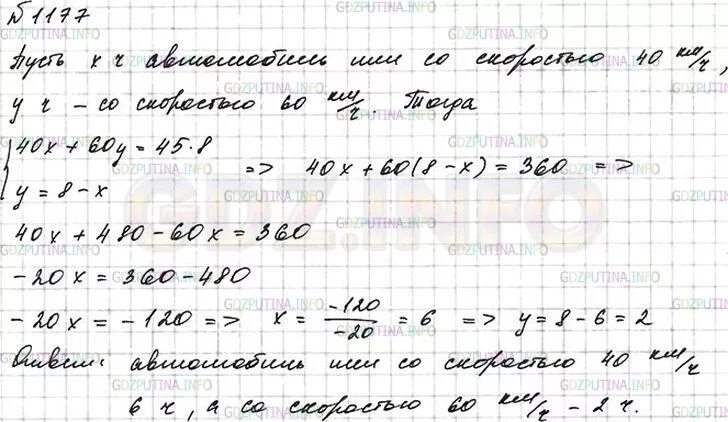 №1177
Пусть x ч автомобиль шел со скоростью 40 км/ч,
y ч – со скоростью 60 км/ч. Тогда
{40x + 60y = 45·8
y = 8 – x
=> 40x + 60(8 – x) = 360 =>
40x + 480 – 60x = 360
–20x = 360 – 480
–20x = –120 => x = –120/–20 = 6 => y = 8 – 6 = 2
Ответ: автомобиль шел со скоростью 40 км/ч
6 ч, а со скоростью 60 км/ч – 2 ч.
GDZ.INFO
GDZPUTINA.INFO